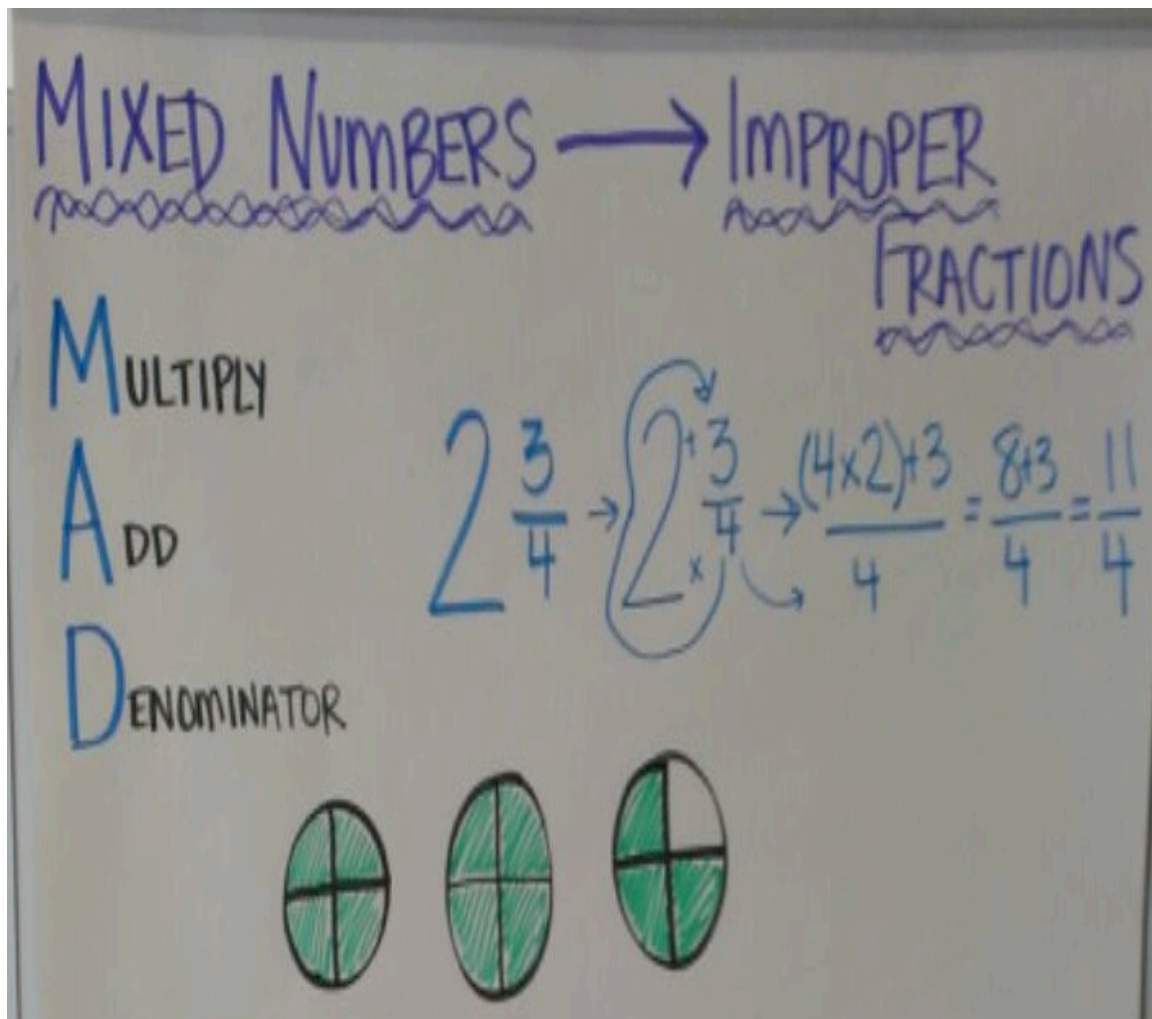 MIXED NUMBERS → IMPROPER
FRACTIONS
MULTIPLY
ADD
DENOMINATOR
2 3/4 → 2 + 3/4 x → (4x2)+3/4 = 8+3/4 = 11/4